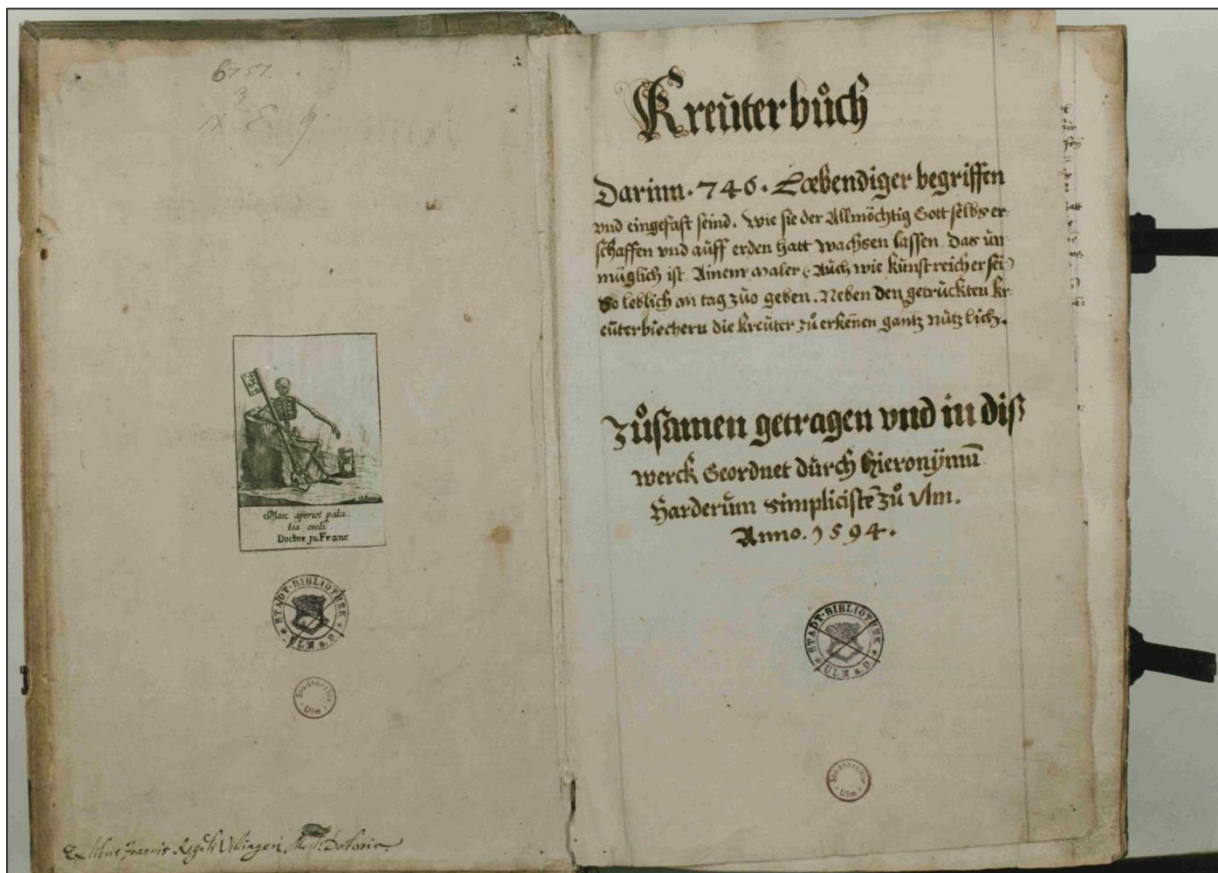 6757.
3
IX E 9
Mox aperiet pala-
tia coeli
Doctor Jo. Franc
STADT-BIBLIOTHEK
ULM a. D.
Stadtarchiv
Ulm
Ex libris Joannis Villingeri Doctoris
Kreüterbůch
Darinn . 746 . Læbendiger begriffen
vnd eingefast seind. Wie sie der Allmöchtig Gott selbs er-
schaffen vnd auff erden hatt wachsen lassen Das ün-
müglich ist Ainem Maler (Auch wie künstreich er sei)
So leblich an tag zůo geben. Neben den getrückten kr-
eüterbiechern die kreüter zů erkeñen gantz nützlich.
Zůsamen getragen vnd in diß
werck Geordnet dürch Hieronÿmū
Harderüm Simplicistē zů Vlm.
Anno. 1594.
STADT-BIBLIOTHEK
ULM a. D.
Stadtarchiv
Ulm